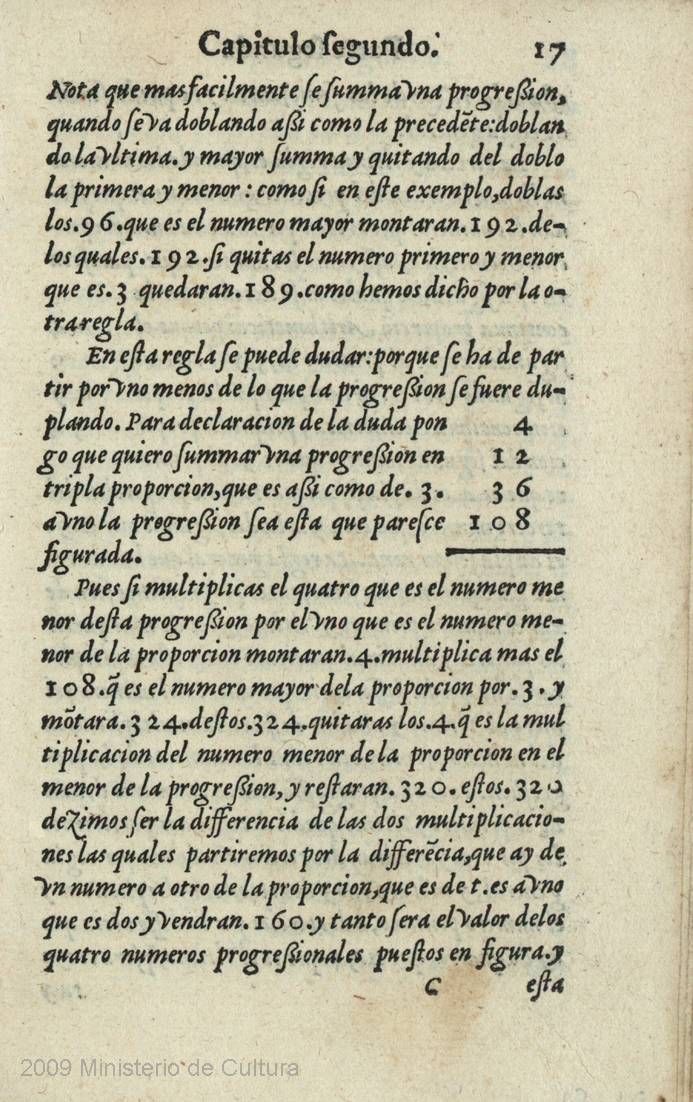 Capitulo ſegundo. 17
Nota que mas facilmente ſe ſumma vna progreßion,
quando ſe va doblando aßi como la precedẽte: doblan
do la vltima. y mayor ſumma y quitando del doblo
la primera y menor : como ſi en eſte exemplo, doblas
los. 96. que es el numero mayor montaran. 192. de-
los quales. 192. ſi quitas el numero primero y menor
que es. 3 quedaran. 189. como hemos dicho por la o-
tra regla.
En eſta regla ſe puede dudar: porque ſe ha de par
tir por vno menos de lo que la progreßion ſe fuere du-
plando. Para declaracion de la duda pon 4
go que quiero ſummar vna progreßion en 12
tripla proporcion, que es aßi como de. 3. 36
a vno la progreßion ſea eſta que pareſce 108
figurada.
Pues ſi multiplicas el quatro que es el numero me
nor deſta progreßion por el vno que es el numero me-
nor de la proporcion montaran. 4. multiplica mas el
108. q̃ es el numero mayor dela proporcion por. 3. y
mõtara. 324. deſtos. 324. quitaras los. 4. q̃ es la mul
tiplicacion del numero menor de la proporcion en el
menor de la progreßion, y reſtaran. 320. eſtos. 320
dezimos ſer la differencia de las dos multiplicacio-
nes las quales partiremos por la differẽcia, que ay de
vn numero a otro de la proporcion, que es de t. es a vno
que es dos y vendran. 160. y tanto ſera el valor delos
quatro numeros progreßionales pueſtos en figura. y
C eſta
2009 Ministerio de Cultura